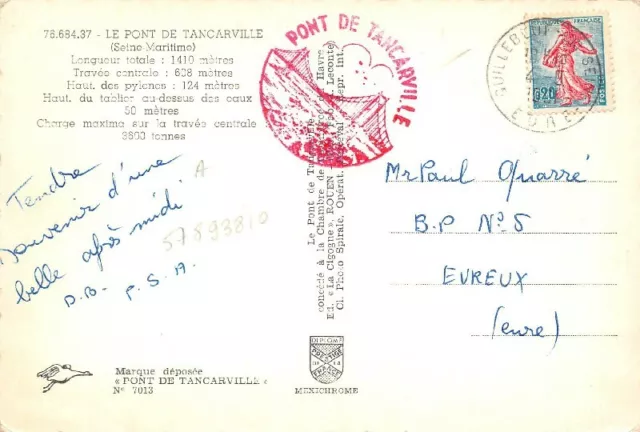 76.684.37 - LE PONT DE TANCARVILLE
(Seine-Maritime)
Longueur totale : 1410 mètres
Travée centrale : 608 mètres
Haut. des pylones : 124 mètres
Haut. du tablier au-dessus des eaux
50 mètres
Charge maxima sur la travée centrale
3600 tonnes
Tendre
souvenir d'une
belle après midi
D.B- P.S.A.
A
57893810
Marque déposée
« PONT DE TANCARVILLE »
No 7013
Le Pont de
concédé à la Chambre de
Ed. « La Cigogne », ROUEN
Cl. Photo Spirale, Opérat.
Havre
Leconte
Repr. Int.
DIPLOME
PRESTIGE
DE LA
FRANCE
MEXICHROME
PONT DE TANCARVILLE
QUILLEBEUF
EURE
REPUBLIQUE FRANÇAISE
0,20
POSTES
Mr Paul Quarré
B.P No 5
EVREUX
(eure)